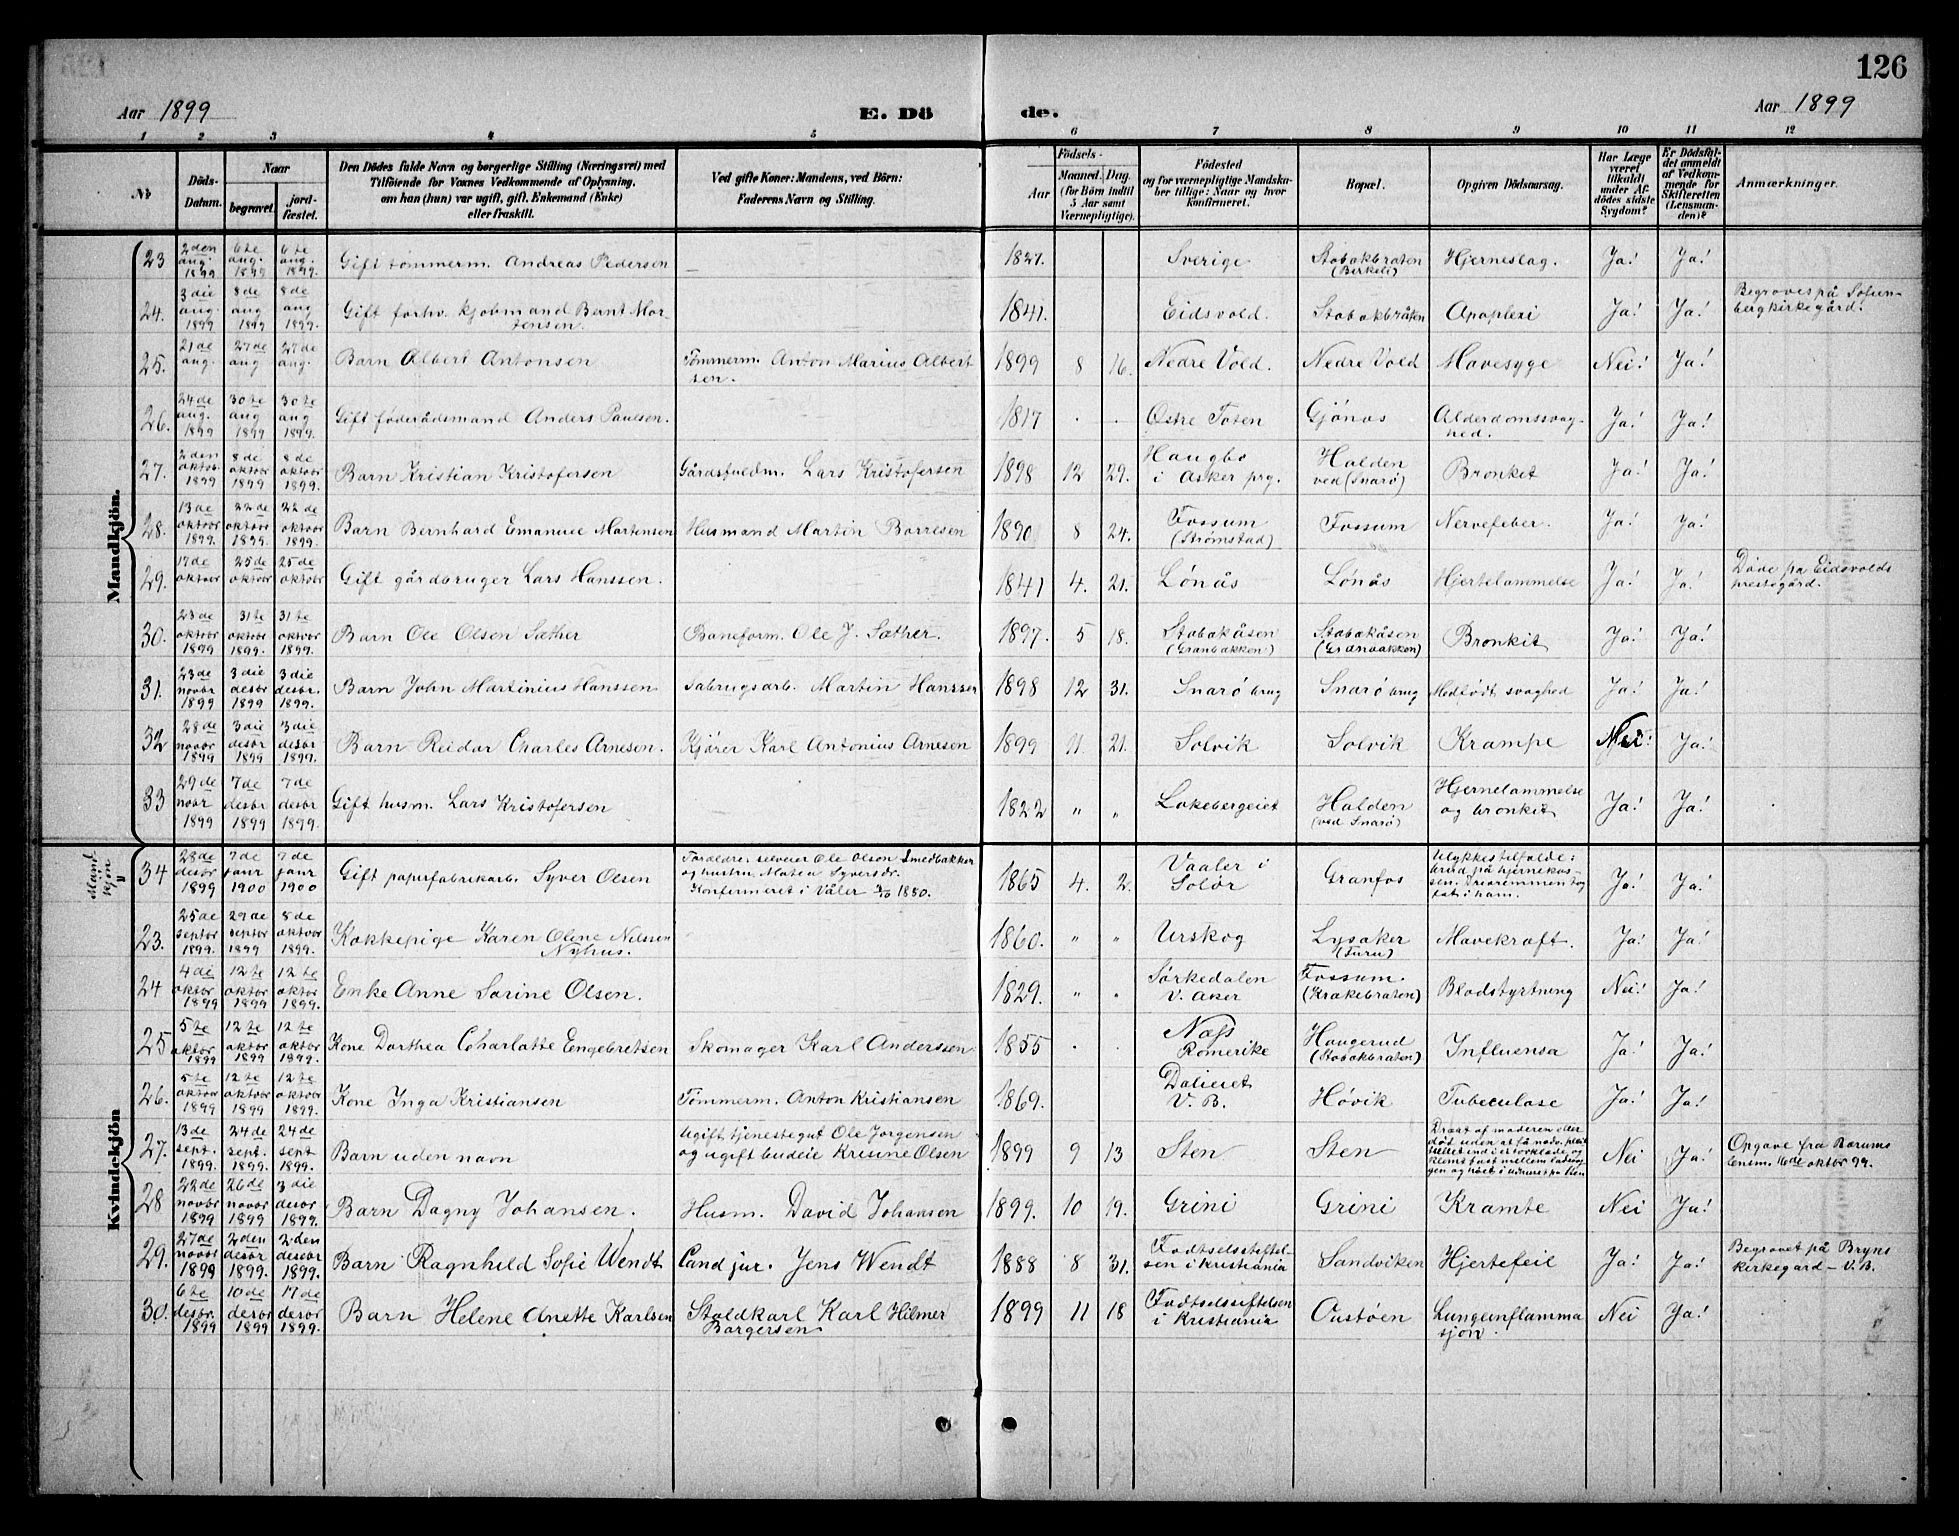 126
Aar 1899
E. Dö
de.
Aar 1899
1 2 3 4 5 6 7 8 9 10 11 12
No
Döds-Datum.
Naar
begravet.
jord-fæstet.
Den Dödes fulde Navn og borgerlige Stilling (Næringsvei) med
Tilföiende for Voxnes Vedkommende af Oplysning,
om han (hun) var ugift, gift, Enkemand (Enke)
eller fraskilt.
Ved gifte Koner: Mandens, ved Börn:
Faderens Navn og Stilling.
Aar
Födsels-
Maaned. Dag.
(for Börn indtil
5 Aar samt
Værnepligtige).
Födested
og for værnepligtige Mandska-
ber tillige: Naar og hvor
konfirmeret.
Bopæl.
Opgiven Dödsaarsag.
Har Læge
været
tilkaldt
under Af-
dödes sidste
Sygdom?
Er Dödsfal-
det anmeldt
af Vedkom-
mende for
Skifteretten
(Lensman-
den)?
Anmærkninger.
Mandkjön.
23 2den aug. 1899 6te aug. 1899 6te aug. 1899. Gift tømmerm. Andreas Pedersen — 1827. Sverige Stabækbraten (Birkeli) Hjerneslag. Ja! Ja!
24. 3die aug. 1899 8de aug 1899 8de aug 1899. Gift forhv. kjøbmand Bernt Mor-
tensen. 1841. Eidsvold. Stabækbråten Apoplexi Ja! Ja! Begroves på Sofien-
bergkirkegård.
25. 21de aug. 27de aug 27de aug. Barn Albert Antonsen Tømmerm. Anton Marius Albert
sen. 1899 8 16. Nedre Vold. Nedre Vold Mavesyge Nei! Ja!
26. 24de aug. 1899 30te aug 1899 30te aug 1899. Gift føderådsmand Anders Paulsen. 1817 Østre Toten Gjønas Alderdomssvag-
hed. Ja! Ja!
27. 2den oktob. 1899 8de oktobr 1899 8de oktobr 1899. Barn Kristian Kristofersen Gårdsfuldm. Lars Kristofersen 1898 12 29. Haugbo
i Asker prg. Halden
ved (Snarø) Bronkit Ja! Ja!
28. 13de oktobr 1899. 22de oktobr 1899. 22de oktobr 1899. Barn Bernhard Emanuel Martensen Husmand Martin Borresen 1890 8 24. Fossum
(Strømstad) Fossum Nervefeber. Ja! Ja!
29. 17de oktobr 25de oktobr 25de oktobr Gift gårdbruger Lars Hanssen. 1841 4. 21. Lønås Lønås Hjertelammelse Ja! Ja! Døde pa Eidsvolds
prestegård.
30. 23de oktobr 1899 31te oktobr 1899. 31te oktobr 1899. Barn Ole Olsen Sæther Baneform. Ole J. Sæther. 1897. 5 18. Stabækåsen
(Granbakken) Stabækåsen
(Granbakken) Bronkit Ja! Ja!
31. 23de novbr 1899 3die desbr 1899 3die desbr. 1899. Barn John Martinius Hanssen Fabrugsarb. Martin Hanssen 1898 12 31. Snarø brug Snarø brug Medfødt svaghed Ja! Ja!
32 28de novbr 1899 3die desbr 1899 3die desbr 1899. Barn Reidar Charles Arnesen. Kjører Karl Antonius Arnesen 1899 11. 21. Solvik Solvik Krampe Nei! Ja!
33 29de novbr 1899 7de desbr 1899 7de desbr 1899. Gift husm. Lars Kristofersen 1822 " " Lakebergeiet Halden
(ved Snarø) Hjernelammelse
og bronkit Ja! Ja!
Mandkjøn
34 28de desbr 1899 7de janr 1900 7de janr 1900 Gift papirfabrikarb. Syver Olsen Foraldre: selveier Ole Olsen Smedbakken
og hustru Matea Syversdr.
Konfirmeret i Våler 1880. 1865 4. 2. Vaaler i
Solør Granfos Ulykkestilfælde:
brud på hjernekas-
sen. Drivremmen tog
fat i ham. Ja! Ja!
Kvindekjön
23. 25de septbr 1899. 29de septbr 1899 8de oktobr 1899. Kokkepige Karen Oline Nilssen
Nyhus. 1860. " " Urskog Lysaker
(Furu) Mavekraft. Ja! Ja!
24 4di oktobr 1899 12te oktobr 1899 12te oktobr 1899. Enke Anne Sorine Olsen. 1829. " " Sørkedalen
V. Aker Fossum.
(Krakebraten) Blodstyrtning Nei! Ja!
25 5te oktobr 1899 12te oktobr 1899 12te oktobr 1899. Kone Dorthea Charlotte Engebretsen Skomager Karl Anderssen 1855 Næss
Romerike Haugerud
(Stabækbraten) Influensa Ja! Ja!
26. 5te oktobr 1899 12te oktobr 1899 12te oktobr 1899. Kone Inga Kristiansen Tømmerm. Anton Kristiansen 1869. Dalieiet
V. B. Høvik Tubeculose Ja! Ja!
27. 13de sept. 1899. 24de sept. 1899. 24de sept 1899. Barn uden navn Ugift tjenestegut Ole Jorgensen
og ugift budeie Kristine Olsen 1899 9 13 Sten Sten Dræbt af moderen eller
død uden at få nødv. pleie Nei Ja! Opgave fra Bærums
Lensm. 16de oktbr 99.
28 22de novbr 1899 26de novbr 1899 3die desbr 1899. Barn Dagny Johansen. Husm. David Johansen 1899. 10 19. Grini Grini Krampe Nei Ja!
29. 27de novbr 1899 2den desbr 1899. 2den desebr 1899. Barn Ragnhild Sofie Wendt Cand jur. Jens Wendt 1888 8 31. Fødselsstiftel-
sen i Kristiania Sandviken Hjertefeil Ja! Ja! Begravet på Bryns
kirkegård — V. B.
30. 6te desbr. 1899 10de desbr 1899. 17de desbr 1899. Barn Helene Anette Karlsen Staldkarl Karl Hilmer
Borgersen 1899 11 18 Fødselsstiftelsen
i Kristiania Oustøen Lungeinflamma
sjon. Nei Ja!